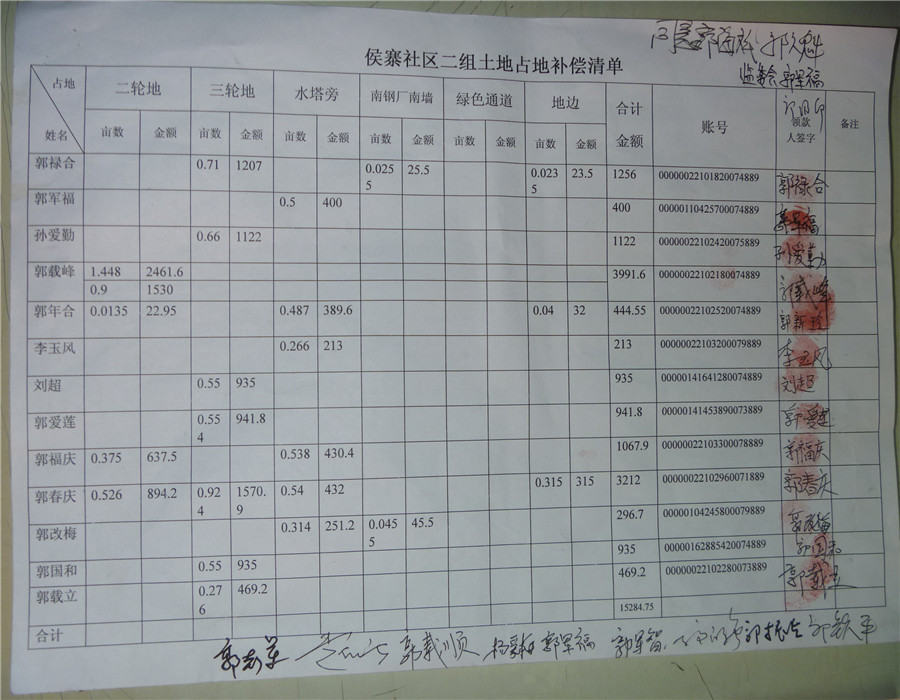 同意 郭久魁
监委会 郭军福
侯寨社区二组土地占地补偿清单
占地 二轮地 三轮地 水塔旁 南钢厂南墙 绿色通道 地边 合计 账号 领款 备注
姓名 亩数 金额 亩数 金额 亩数 金额 亩数 金额 亩数 金额 亩数 金额 金额 人签字
郭禄合 0.71 1207 0.0255 25.5 0.0235 23.5 1256 00000022101820074889 郭禄合
郭军福 0.5 400 400 00000110425700074889 郭军福
孙爱勤 0.66 1122 1122 00000022102420075889 孙爱勤
郭载峰 1.448 2461.6 3991.6 00000022102180074889 郭载峰
0.9 1530
郭年合 0.0135 22.95 0.487 389.6 0.04 32 444.55 00000022102520074889 郭新玲
李玉风 0.266 213 213 00000022103200079889 李玉风
刘超 0.55 935 935 00000141641280074889 刘超
郭爱莲 0.554 941.8 941.8 00000141453890073889 郭爱莲
郭福庆 0.375 637.5 0.538 430.4 1067.9 00000022103300078889 郭福庆
郭春庆 0.526 894.2 0.924 1570.9 0.54 432 0.315 315 3212 00000022102960071889 郭春庆
郭改梅 0.314 251.2 0.0455 45.5 296.7 00000104245800079889 郭改梅
郭国和 0.55 935 935 00000162885420074889 郭国和
郭载立 0.276 469.2 469.2 00000022102280073889 郭载立
合计 15284.75
郭载顺 郭军福 郭军智 郭振合 郭铁平